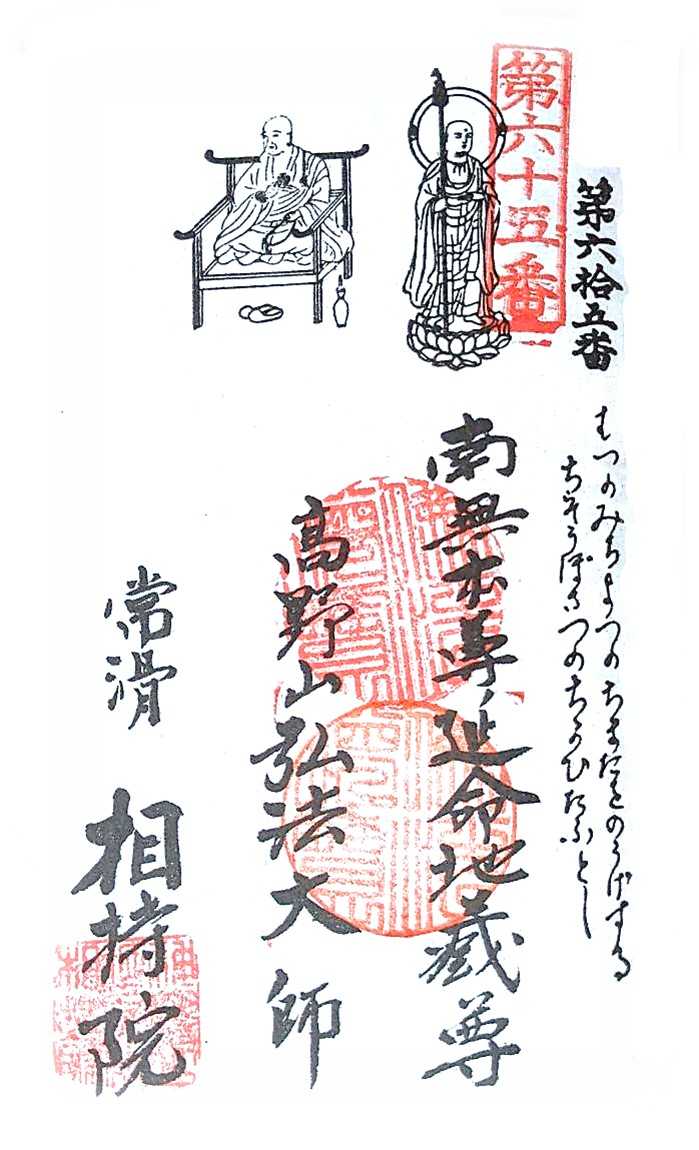 第六拾五番
第六十五番
むつのみちよつのちまたをのうげする
ちそうぼさつのちかひたふとし
南無本尊延命地蔵尊
高野山弘法大師
常滑 相持院